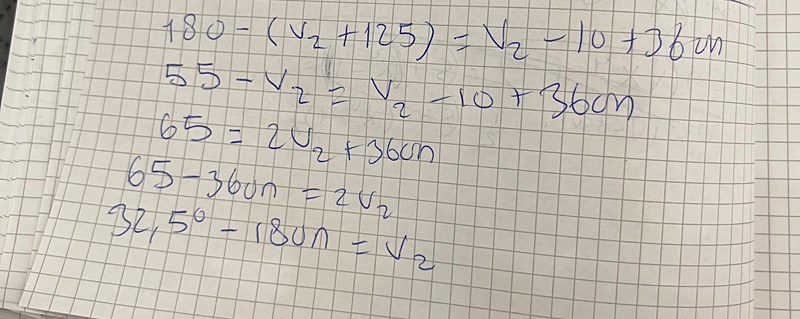 180 - (v₂ + 125) = v₂ - 10 + 360n
55 - v₂ = v₂ - 10 + 360n
65 = 2v₂ + 360n
65 - 360n = 2v₂
32,5° - 180n = v₂